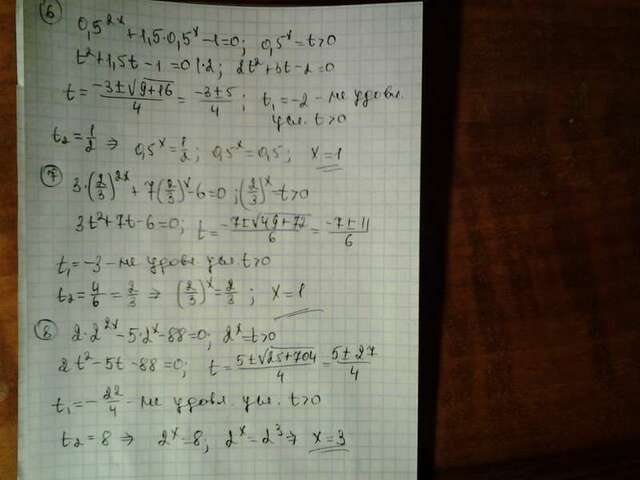 ⑥ 0,5^{2x} + 1,5·0,5^x - 1 = 0; 0,5^x = t > 0
t² + 1,5t - 1 = 0 |·2; 2t² + 3t - 2 = 0
t = (-3 ± √(9+16))/4 = (-3 ± 5)/4; t₁ = -2 - не удовл.
усл. t > 0
t₂ = 1/2 ⇒ 0,5^x = 1/2; 0,5^x = 0,5; x = 1
⑦ 3·(2/3)^{2x} + 7(2/3)^x - 6 = 0; (2/3)^x = t > 0
3t² + 7t - 6 = 0; t = (-7 ± √(49+72))/6 = (-7 ± 11)/6
t₁ = -3 - не удовл. усл t > 0
t₂ = 4/6 = 2/3 ⇒ (2/3)^x = 2/3; x = 1
⑧ 2·2^{2x} - 5·2^x - 88 = 0; 2^x = t > 0
2t² - 5t - 88 = 0; t = (5 ± √(25+704))/4 = (5 ± 27)/4
t₁ = -22/4 - не удовл. усл. t > 0
t₂ = 8 ⇒ 2^x = 8; 2^x = 2³ ⇒ x = 3